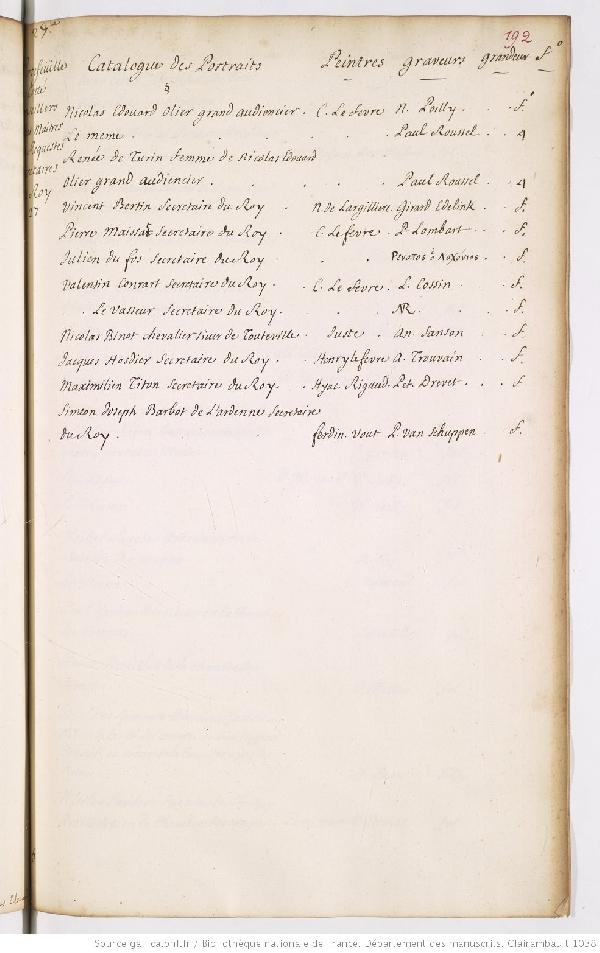 192
Catalogue des Portraits Peintres graveurs grandeur fº
§
Nicolas Edouard Olier grand audiencier . C. Le fevre N. Poilly . . f.
Le meme . . . . . Paul Roussel . . 4
Renée de Turin femme de Nicolas Edouard
Olier grand audiencier . . . . . Paul Roussel . . 4
Vincent Bertin Secretaire du Roy . . N. de Largilliere. Girard Edelink . . f.
Pierre Maissat Secretaire du Roy . . C. Le fevre . P. Lombart . . . f.
Julien du fos Secretaire du Roy . . . f.
Valentin Conrart Secretaire du Roy . . C. Le fevre . L. Cossin . . . f.
. . Le Vasseur Secretaire du Roy . . . NR . . . f.
Nicolas Binet chevalier sieur de Touteville . Juste . An. Sanson . . f.
Jacques Hosdier Secretaire du Roy . . Henry le fevre A. Trouvain . . f.
Maximilien Titon Secretaire du Roy . . Hyac. Rigaud. Pet. Drevet . . . f
Simeon Joseph Barbot de L'ardenne Secretaire
du Roy . . . ferdin. Vout P. Van Schuppen . . f.
Source gallica.bnf.fr / Bibliothèque nationale de France. Département des manuscrits. Clairambault 1038